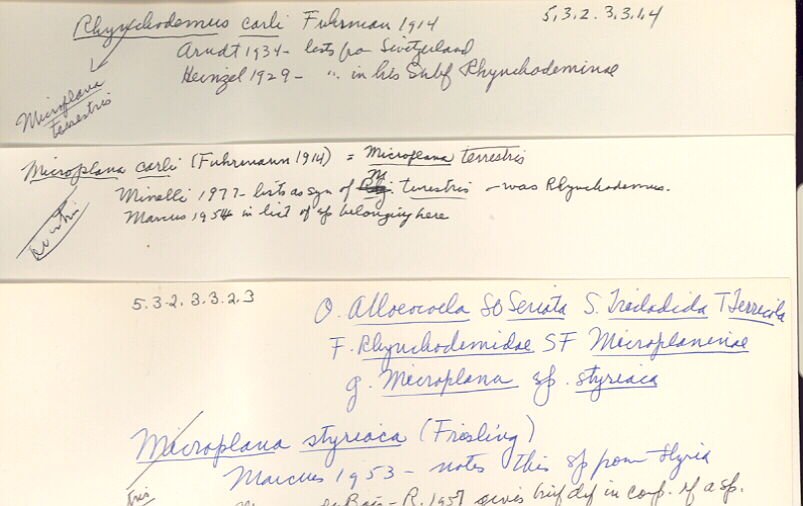 Rhynchodemus carli Fuhrman 1914 5.3.2.3.3.1.4
Arndt 1934 - lists from Switzerland
Heinzel 1929 - " in his Subf Rhynchodeminae
Microplana
terrestris
Microplana carli (Fuhrmann 1914) = Microplana terrestris
Minelli 1977 - lists as syn of M. terrestris - was Rhynchodemus.
Marcus 1954 in list of sp belonging here
5.3.2.3.3.2.3
O. Alloeocoela SO Seriata S. Tricladida T Terricola
F. Rhynchodemidae SF Microplaninae
g. Microplana sp. styriaca
Microplana styriaca (Freisling)
Marcus 1953 - notes this sp from Styria
tris
R. 1957 gives brief def in comp. of a sp.